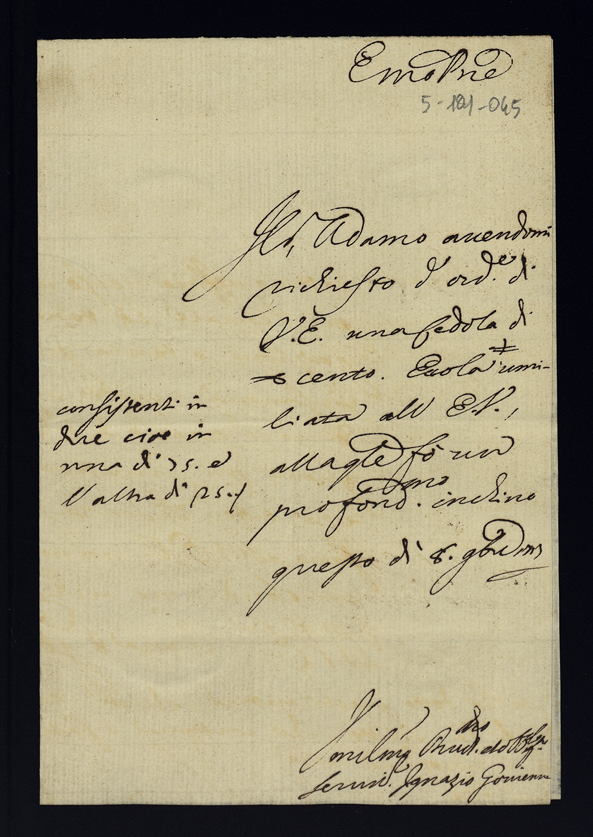 Emo Pne
5-121-045
Il Sr. Adamo avendomi
richiesto d'ord.e di
V.E. una fedola di
cento. Ecola ‡ umi-
liata all' E.V.,
alla qle fo un
profond.mo inchino
questo dì 8. gbre
consistenti in
due cioe in
una di 75. e
l'altra di 25.
Umilmo
servo. Ignazio